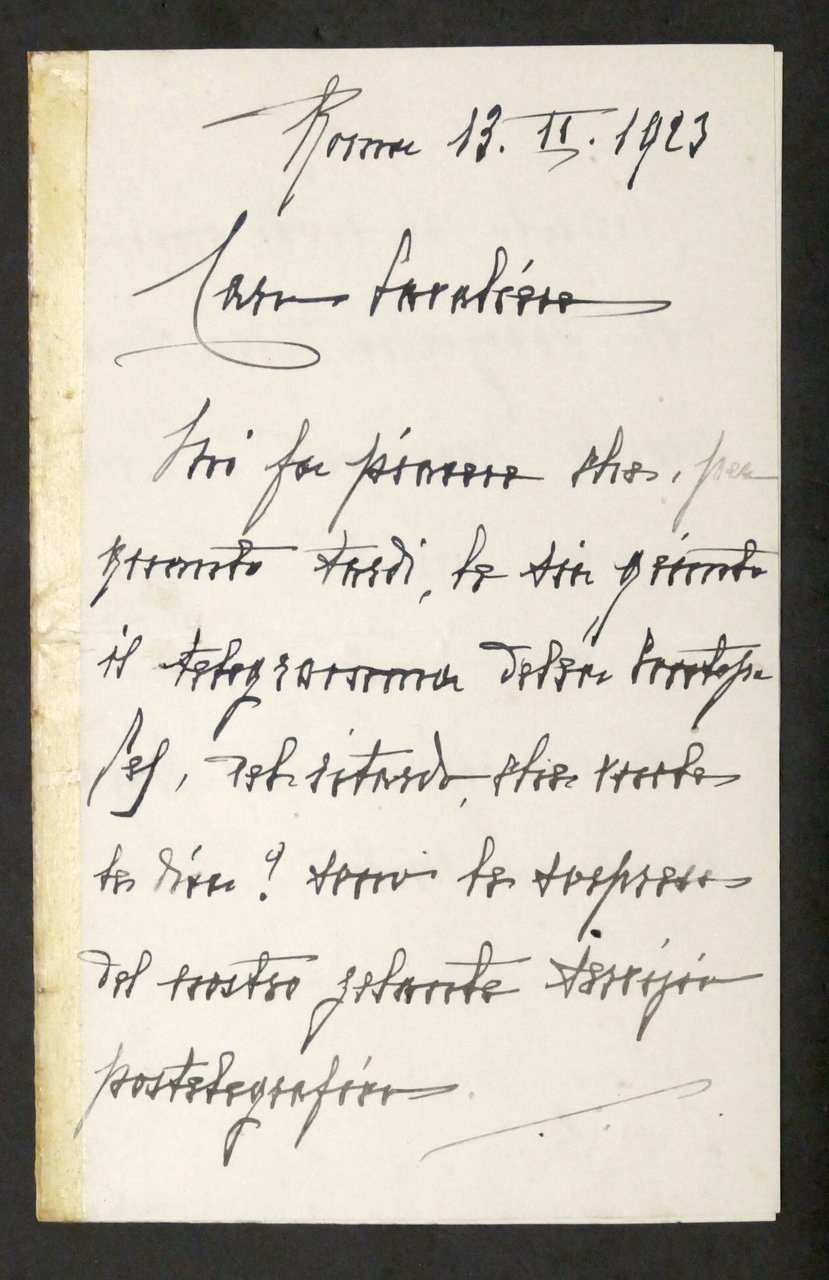 Roma 13. II. 1923
Caro Cavaliere
Mi fa piacere che, per
quanto tardi, le sia giunto
il telegramma
Del ritardo, che vuole
le dica? sono le sorprese
del nostro zelante servizio
postelegrafico.